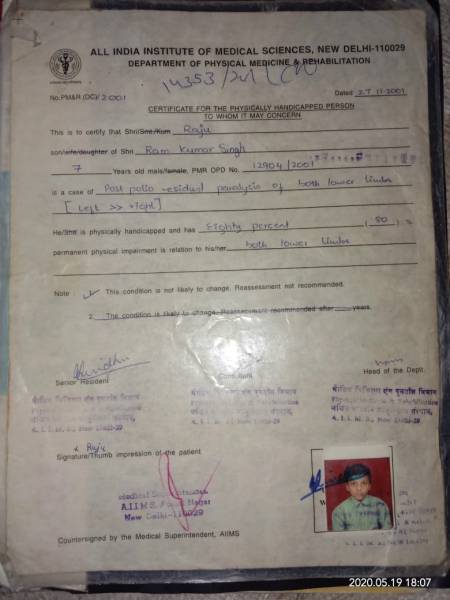 ALL INDIA INSTITUTE OF MEDICAL SCIENCES, NEW DELHI-110029
DEPARTMENT OF PHYSICAL MEDICINE & REHABILITATION
14353/201
No.PM&R (DC)/2001
Dated 27-11-2001
CERTIFICATE FOR THE PHYSICALLY HANDICAPPED PERSON
TO WHOM IT MAY CONCERN
This is to certify that Shri/Smt/Kum Raju
son/wife/daughter of Shri Ram Kumar Singh
7 Years old male/female, PMR OPD No. 12904/2001
is a case of Post polio residual paralysis of both lower limbs
[Left >> right]
He/She is physically handicapped and has Eighty percent (80)
permanent physical impairment is relation to his/her both lower limbs
Note : This condition is not likely to change. Reassessment not recommended.
2. The condition is likely to change. Reassessment recommended after years.
Senior Resident
Consultant
Head of the Deptt.
x Raju
Signature/Thumb impression of the patient
Medical Superintendent
A.I.I.M.S. Ansari Nagar
New Delhi-110029
Countersigned by the Medical Superintendent, AIIMS
2020.05.19 18:07